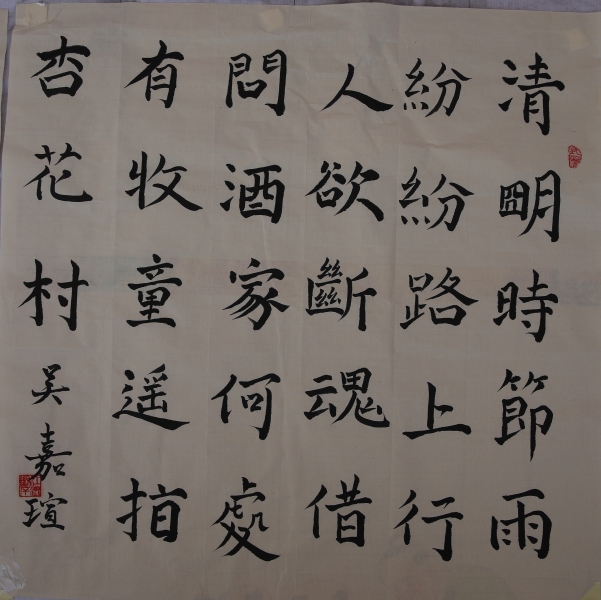 清明時節雨
紛紛路上行
人欲斷魂借
問酒家何處
有收童遥指
杏花村
吴嘉瑄